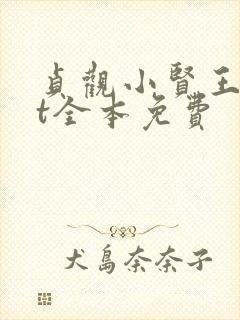 貞觀小賢王
t全本免費
犬島奈奈子